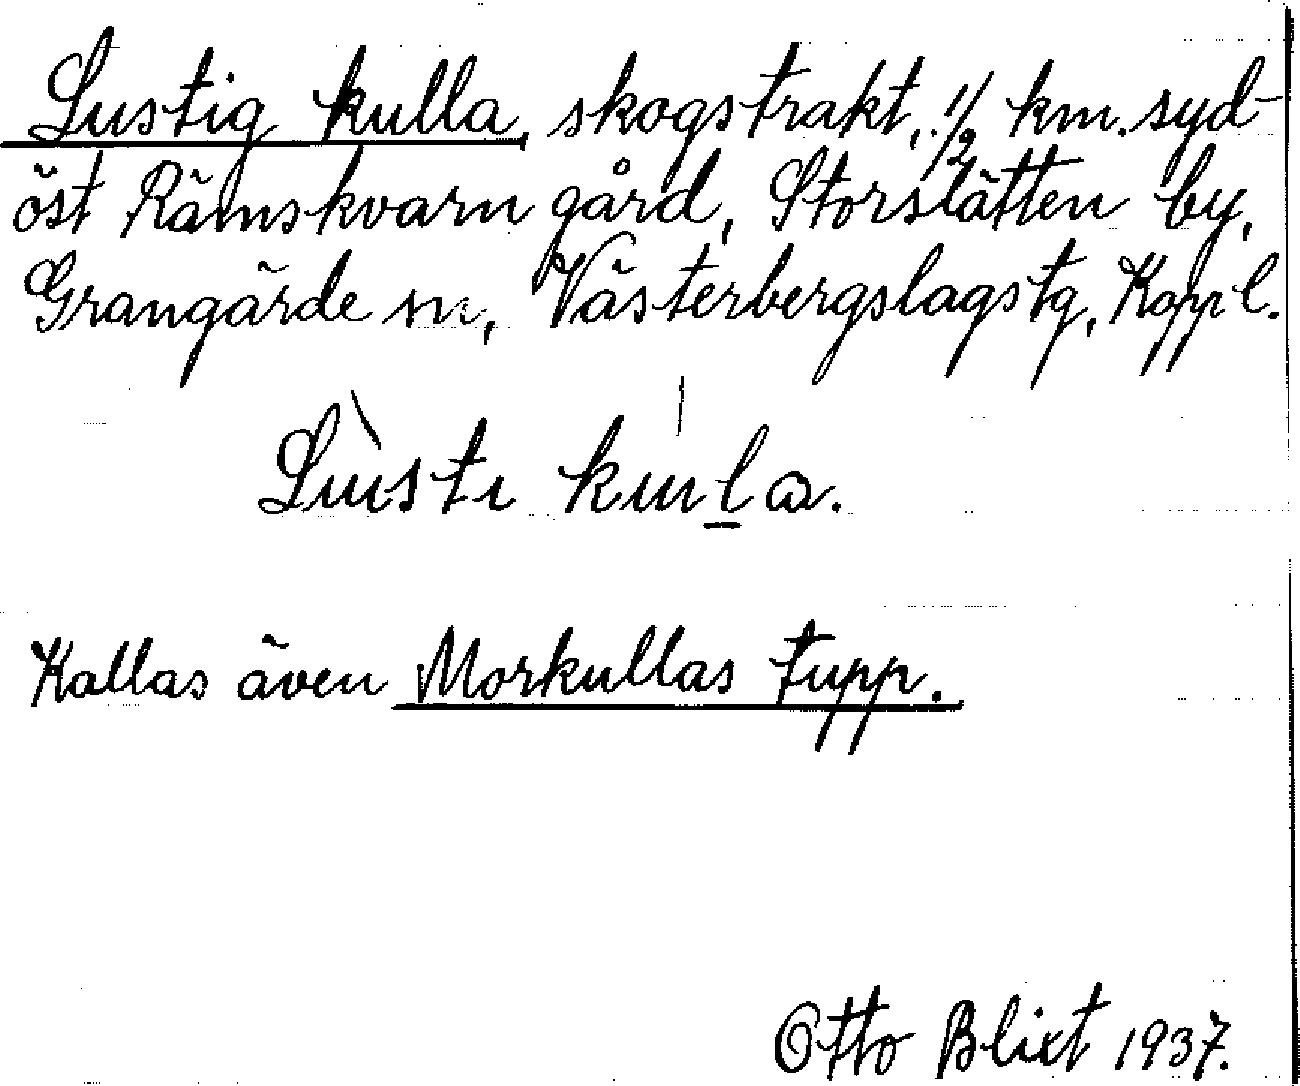 Lustig kulla, skogstrakt, 1/2 km. syd-
öst Rämskvarn gård, Storslätten by,
Grangärde sn, Västerbergslags tg, Kopp l.
Lusti kulla.
Kallas även Morkullas tupp.
Otto Blixt 1937.